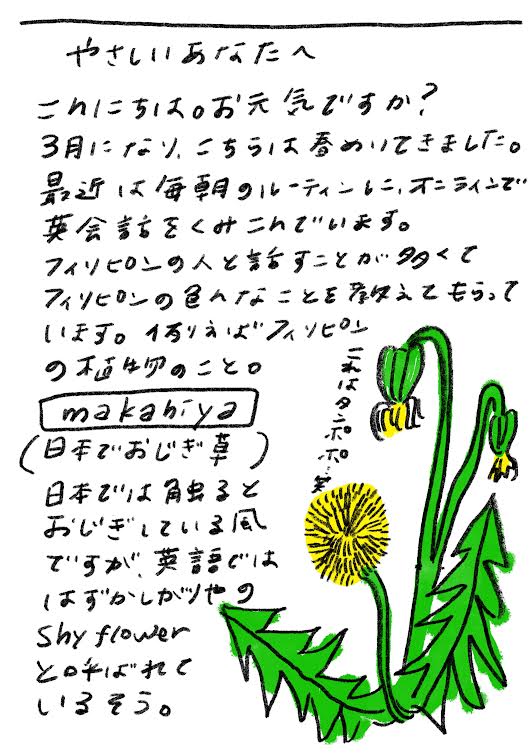 やさしいあなたへ
こんにちは。お元気ですか？
3月になり、こちらは春めいてきました。
最近は毎朝のルーティンに、オンラインで
英会話をくみこんでいます。
フィリピンの人と話すことが多くて
フィリピンの色んなことを教えてもらって
います。例えばフィリピン
の植物のこと。
makahiya
(日本でおじぎ草)
日本では触ると
おじぎしている風
ですが、英語では
はずかしがりやの
shy flower
と呼ばれて
いるそう。
これはタンポポ…笑